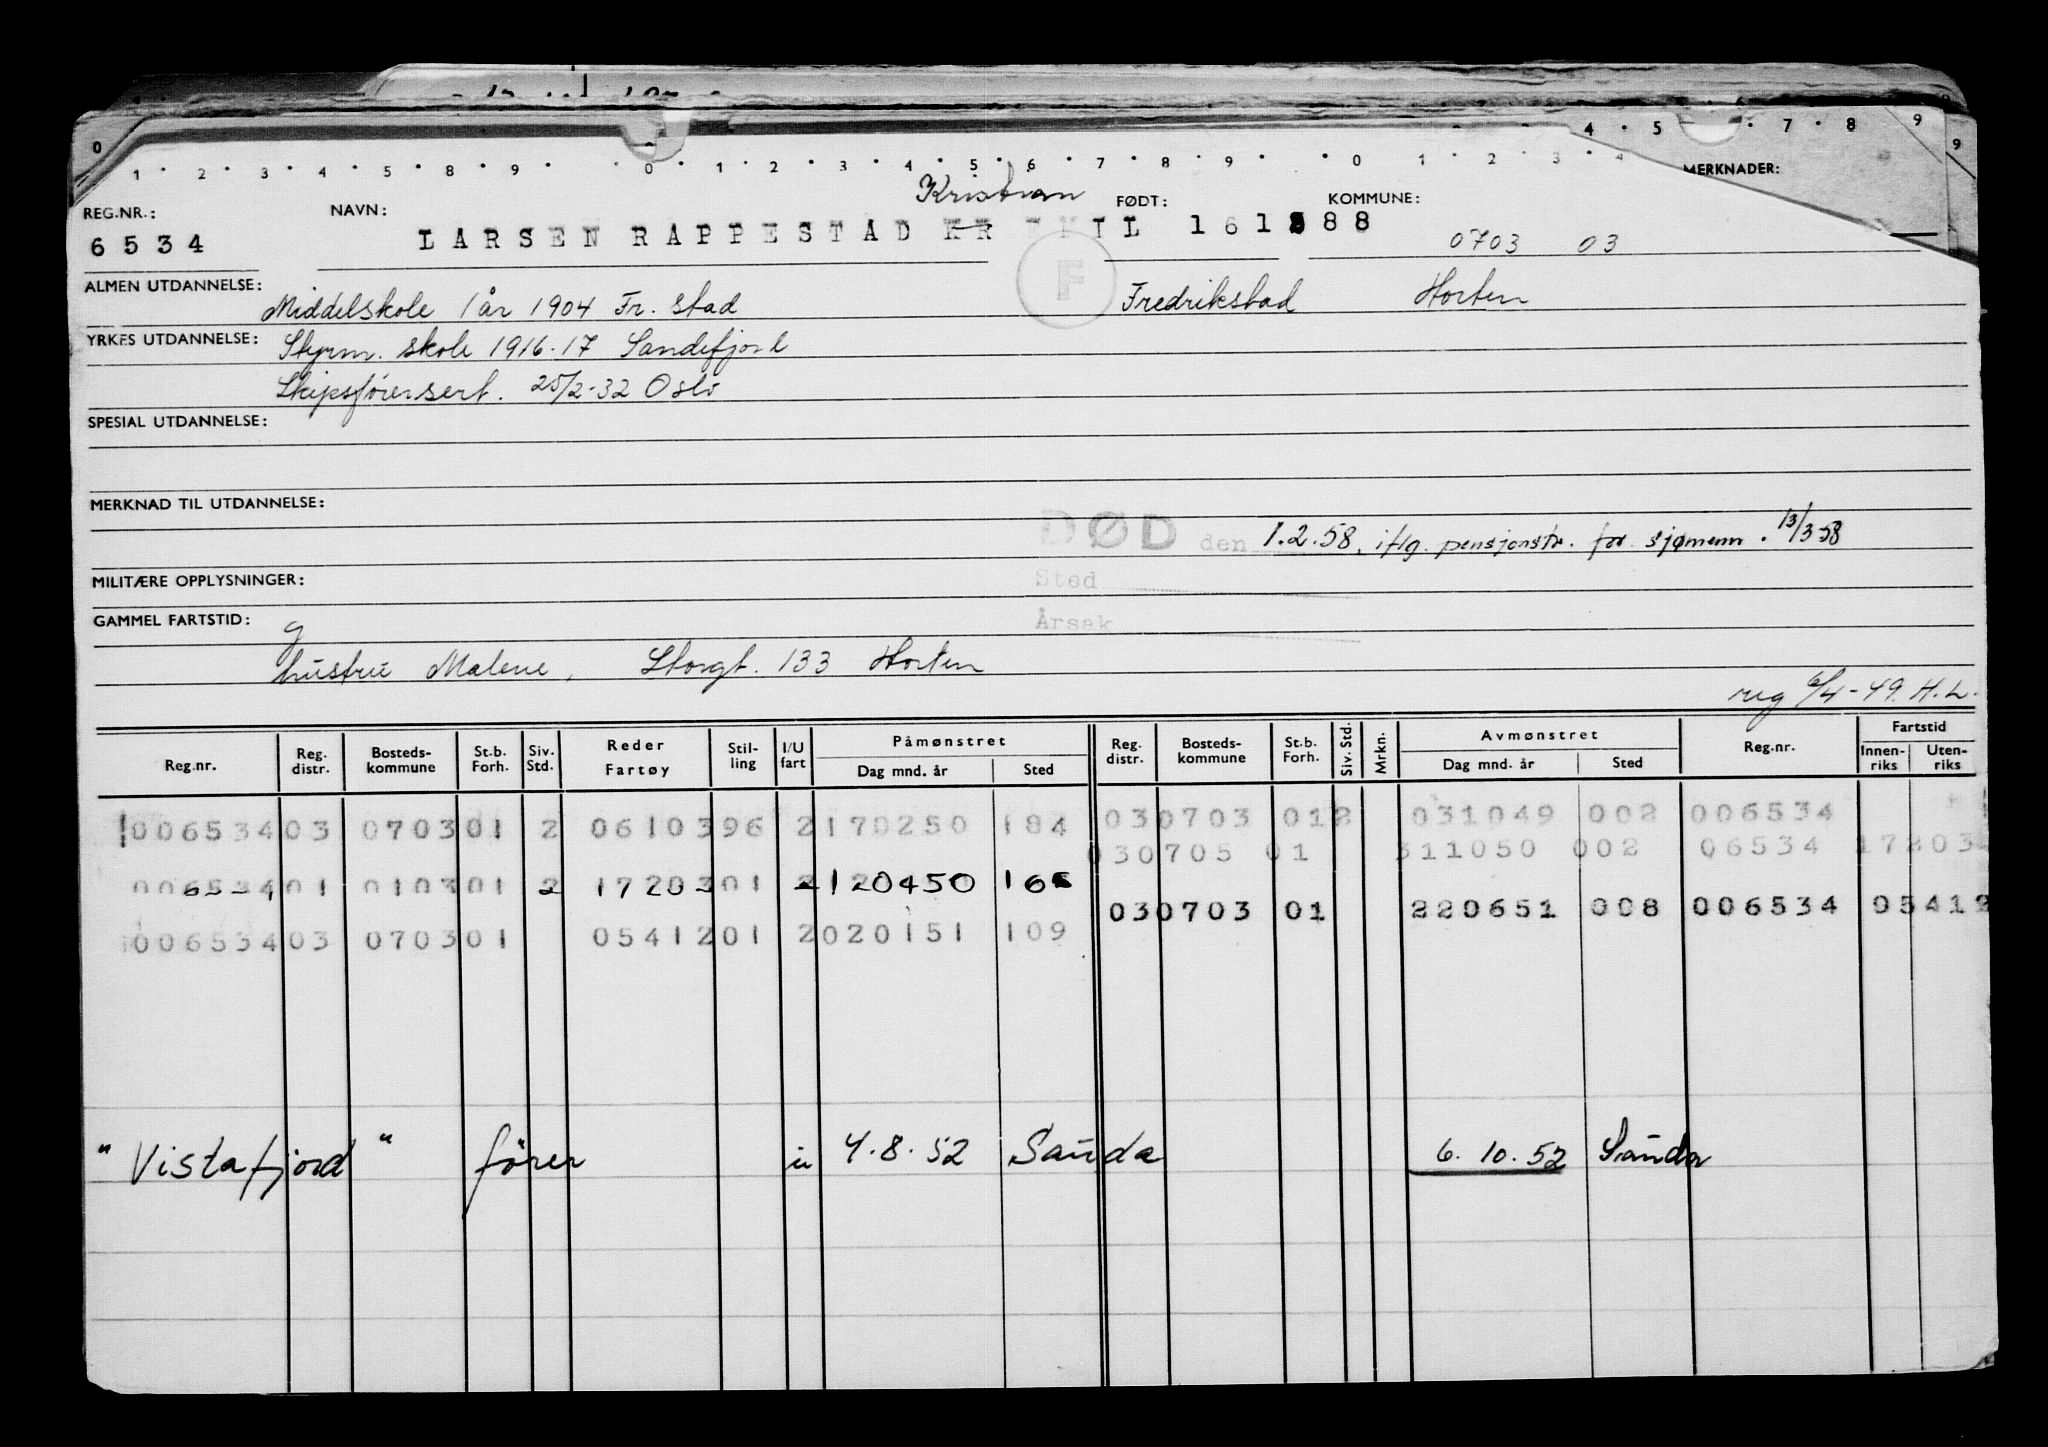 0 1 2 3 4 5 6 7 8 9 0 1 2 3 4 5 6 7 8 9 0 1 2 3 4 5 7 8 9
MERKNADER:
REG.NR.: NAVN: Kristian FØDT: KOMMUNE:
6534 LARSEN RAPPESTAD KR EMIL 161 88 0703 03
F
ALMEN UTDANNELSE: Middelskole 1 år 1904 Fr. stad Fredrikstad Horten
YRKES UTDANNELSE: Styrm. skole 1916-17 Sandefjord
Skipsførersert. 25/2-32 Oslo
SPESIAL UTDANNELSE:
MERKNAD TIL UTDANNELSE:
DØD den 1.2.58, iflg. pensjonstr. for sjømenn. 13/3 58
MILITÆRE OPPLYSNINGER: Sted
GAMMEL FARTSTID: g Årsak
hustru Malene, Storgt. 133 Horten
reg 6/4-49. H.L.
Reg.nr. Reg. distr. Bosteds-kommune St.b. Forh. Siv. Std. Reder Fartøy Stil-ling I/U fart Påmønstret Dag mnd. år Sted Reg. distr. Bosteds-kommune St.b. Forh. Siv. Std. Mrkn. Avmønstret Dag mnd. år Sted Reg.nr. Fartstid Innen-riks Uten-riks
006534 03 0703 01 2 06103 96 2 170250 184 03 0703 01 2 031049 002 006534
030705 01 311050 002 06534 17203
006534 01 0103 01 2 17203 01 2 120450 16
03 0703 01 220651 008 006534 05412
006534 03 0703 01 05412 01 2 020151 109
"Vistafjord" fører u 4.8.52 Sauda 6.10.52 Sauda